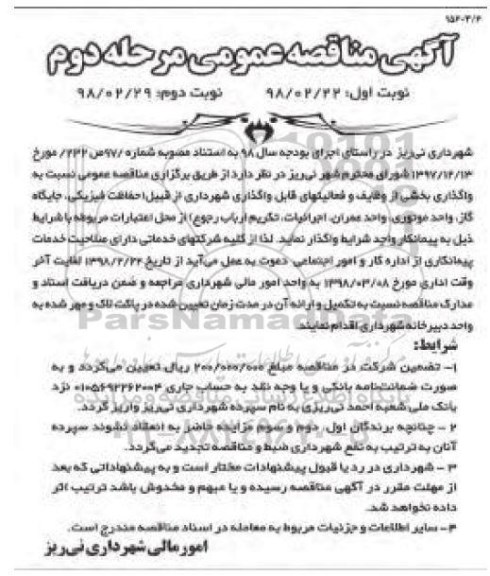 ۹۵۲-۳/۶
آگهی مناقصه عمومی مرحله دوم
نوبت اول: ۹۸/۰۲/۲۲ نوبت دوم: ۹۸/۰۲/۲۹
شهرداری نی‌ریز در راستای اجرای بودجه سال ۹۸ به استناد مصوبه شماره ۹۷/ص ۲۳۲/ مورخ
۱۳۹۷/۱۲/۱۳ شورای محترم شهر نی‌ریز در نظر دارد از طریق برگزاری مناقصه عمومی نسبت به
واگذاری بخشی از وظایف و فعالیتهای قابل واگذاری شهرداری از قبیل (حفاظت فیزیکی، جایگاه
گاز، واحد موتوری، واحد عمران، اجرائیات، تکریم ارباب رجوع) از محل اعتبارات مربوطه با شرایط
ذیل به پیمانکار واجد شرایط واگذار نماید. لذا از کلیه شرکتهای خدماتی دارای صلاحیت خدمات
پیمانکاری از اداره کار و امور اجتماعی دعوت به عمل می‌آید از تاریخ ۱۳۹۸/۲/۲۲ لغایت آخر
وقت اداری مورخ ۱۳۹۸/۰۳/۰۸ به واحد امور مالی شهرداری مراجعه و ضمن دریافت اسناد و
مدارک مناقصه نسبت به تکمیل و ارائه آن در مدت زمان تعیین شده در پاکت لاک و مهر شده به
واحد دبیرخانه شهرداری اقدام نمایند.
ParsNamadData
شرایط:
۱- تضمین شرکت در مناقصه مبلغ ۲۰۰/۰۰۰/۰۰۰ ریال تعیین می‌گردد و به
صورت ضمانت‌نامه بانکی و یا وجه نقد به حساب جاری ۰۱۰۵۶۹۲۲۶۲۰۰۴ نزد
بانک ملی شعبه احمد نی‌ریزی به نام سپرده شهرداری نی‌ریز واریز گردد.
۲ - چنانچه برندگان اول، دوم و سوم مزایده حاضر به انعقاد نشوند سپرده
آنان به ترتیب به نفع شهرداری ضبط و مناقصه تجدید می‌گردد.
۳ - شهرداری در رد یا قبول پیشنهادات مختار است و به پیشنهاداتی که بعد
از مهلت مقرر در آگهی مناقصه رسیده و یا مبهم و مخدوش باشد ترتیب اثر
داده نخواهد شد.
۴- سایر اطلاعات و جزئیات مربوط به معامله در اسناد مناقصه مندرج است.
امور مالی شهرداری نی‌ریز